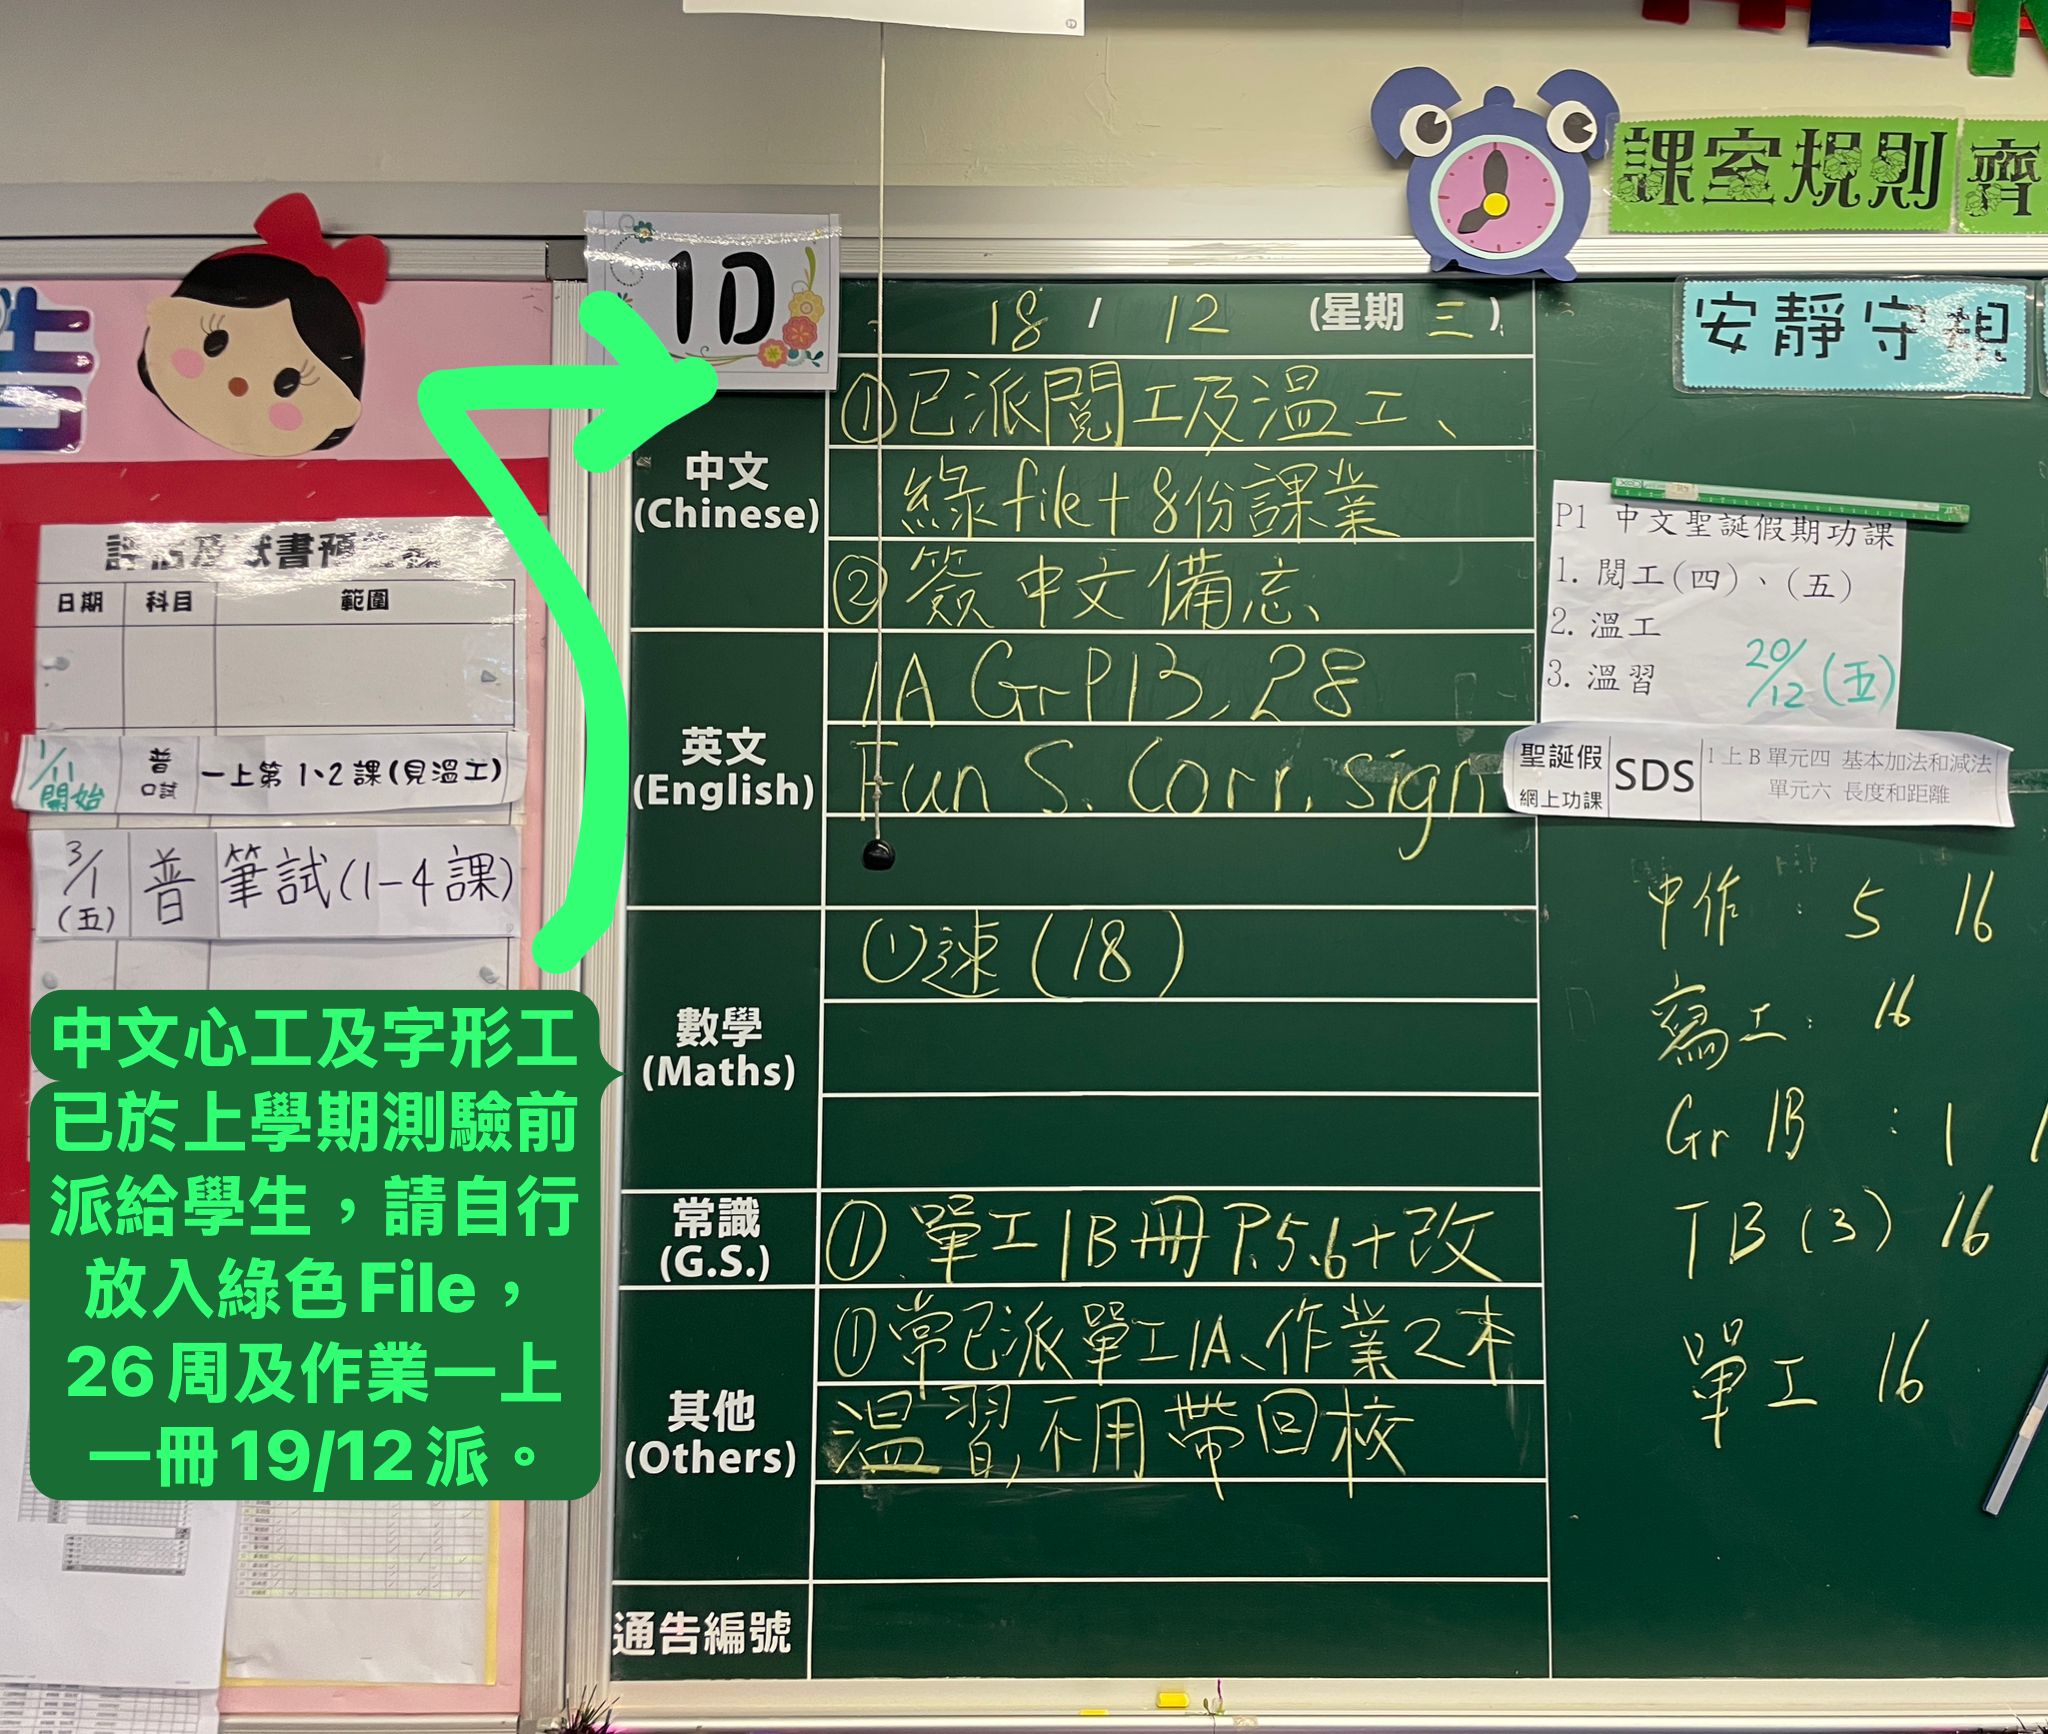 課室規則
齊
安靜守規
1D
18 / 12 (星期 三)
中文
(Chinese)
①已派閱工及溫工、
綠file+8份課業
②簽中文備忘
英文
(English)
1A Gr P13, 28
Fun S. Corr. sign
數學
(Maths)
①速(18)
常識
(G.S.)
① 單工1B冊P.5,6+改
其他
(Others)
①常已派單工1A、作業之本
溫習,不用帶回校
通告編號
P1 中文聖誕假期功課
1. 閱工(四)、(五)
2. 溫工
3. 溫習
20/12 (五)
聖誕假
網上功課
SDS
1上B單元四 基本加法和減法
單元六 長度和距離
中作: 5 16
寫工: 16
Gr 1B : 1
TB(3) 16
單工 16
告
日期 科目 範圍
1/11 開始
普
口試
一上第1、2課(見溫工)
3/1
(五)
普
筆試(1-4課)
中文心工及字形工
已於上學期測驗前
派給學生，請自行
放入綠色File，
26周及作業一上
一冊19/12派。